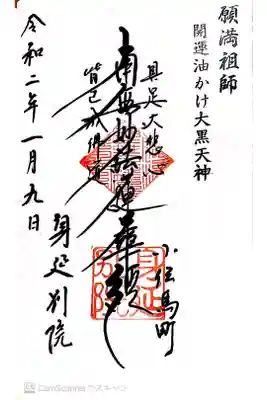 願満祖師
開運油かけ大黒天神
具足大悲心
南無妙法蓮華経
皆已成佛道
小伝馬町
身延別院
令和二年一月九日
身延別院
CamScanner でスキャン